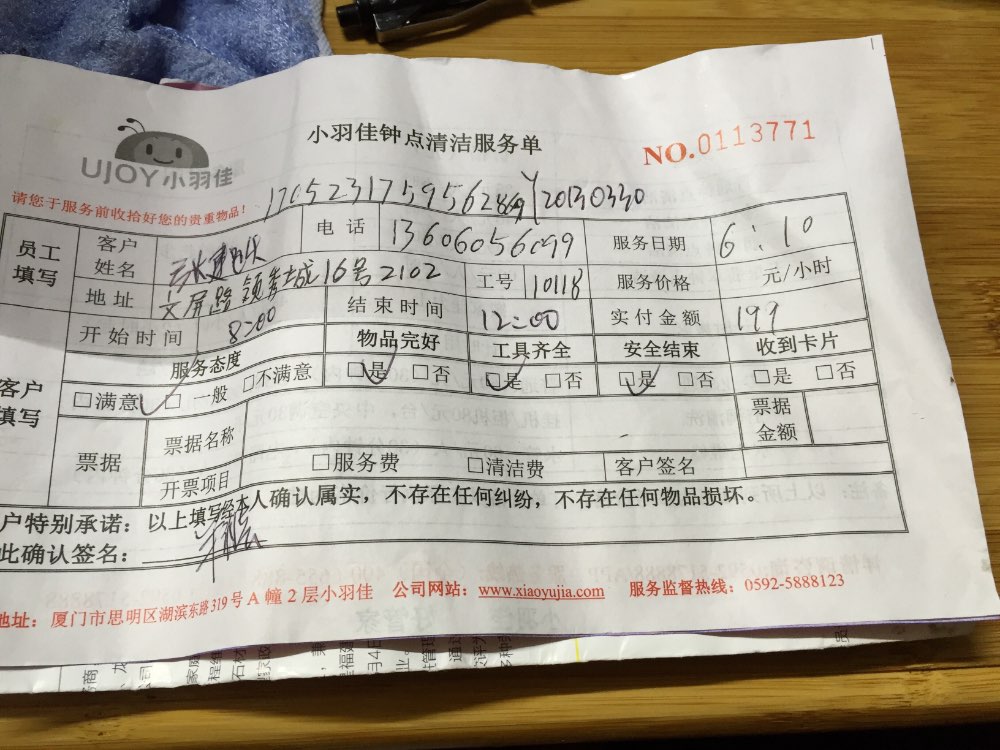 小羽佳钟点清洁服务单
NO.0113771
UJOY小羽佳
请您于服务前收拾好您的贵重物品!
员工填写 客户姓名 电话 13606056099 服务日期 6:10
地址 文屏路领秀城16号2102 工号 10118 服务价格 元/小时
开始时间 8:00 结束时间 12:00 实付金额 199
客户填写 服务态度 物品完好 工具齐全 安全结束 收到卡片
□满意 □一般 □不满意 □是 □否 □是 □否 □是 □否 □是 □否
票据 票据名称 票据金额
开票项目 □服务费 □清洁费 客户签名
户特别承诺：以上填写经本人确认属实，不存在任何纠纷，不存在任何物品损坏。
此确认签名：
地址：厦门市思明区湖滨东路319号A幢2层小羽佳 公司网站：www.xiaoyujia.com 服务监督热线：0592-5888123